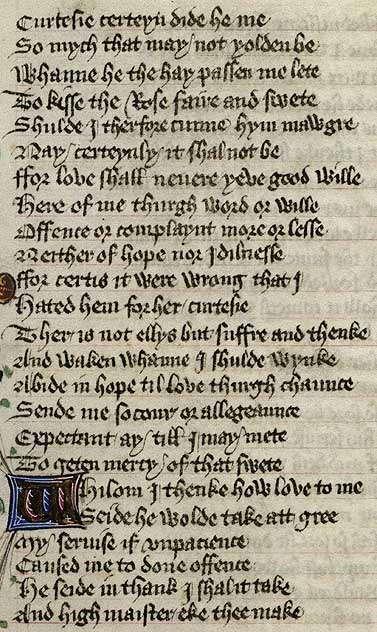 Curtesie certeyn dide he me
So mych that may not yolden be
Whanne he the hay passen me lete
To kisse the Rose faire and swete
Shulde I therfore cunne hym mawgre
Nay certeynly it shal not be
ffor love shall nevere yeve good wille
Here of me thurgh word or wille
Offence or complaynt more or lesse
Neither of hope nor Idilnesse
ffor certis it were wrong that I
Hated hem for her curtesie
Ther is not ellys but suffre and thenke
And waken whanne I shulde wynke
Abide in hope til love thurgh chaunce
Sende me socour or allegeaunce
Expectant ay till I may mete
To geten mercy of that swete
Whilom I thenke how love to me
Seide he wolde take att gree
My servise if unpacience
Caused me to done offence
He seide in thank I shal it take
And high maister eke thee make